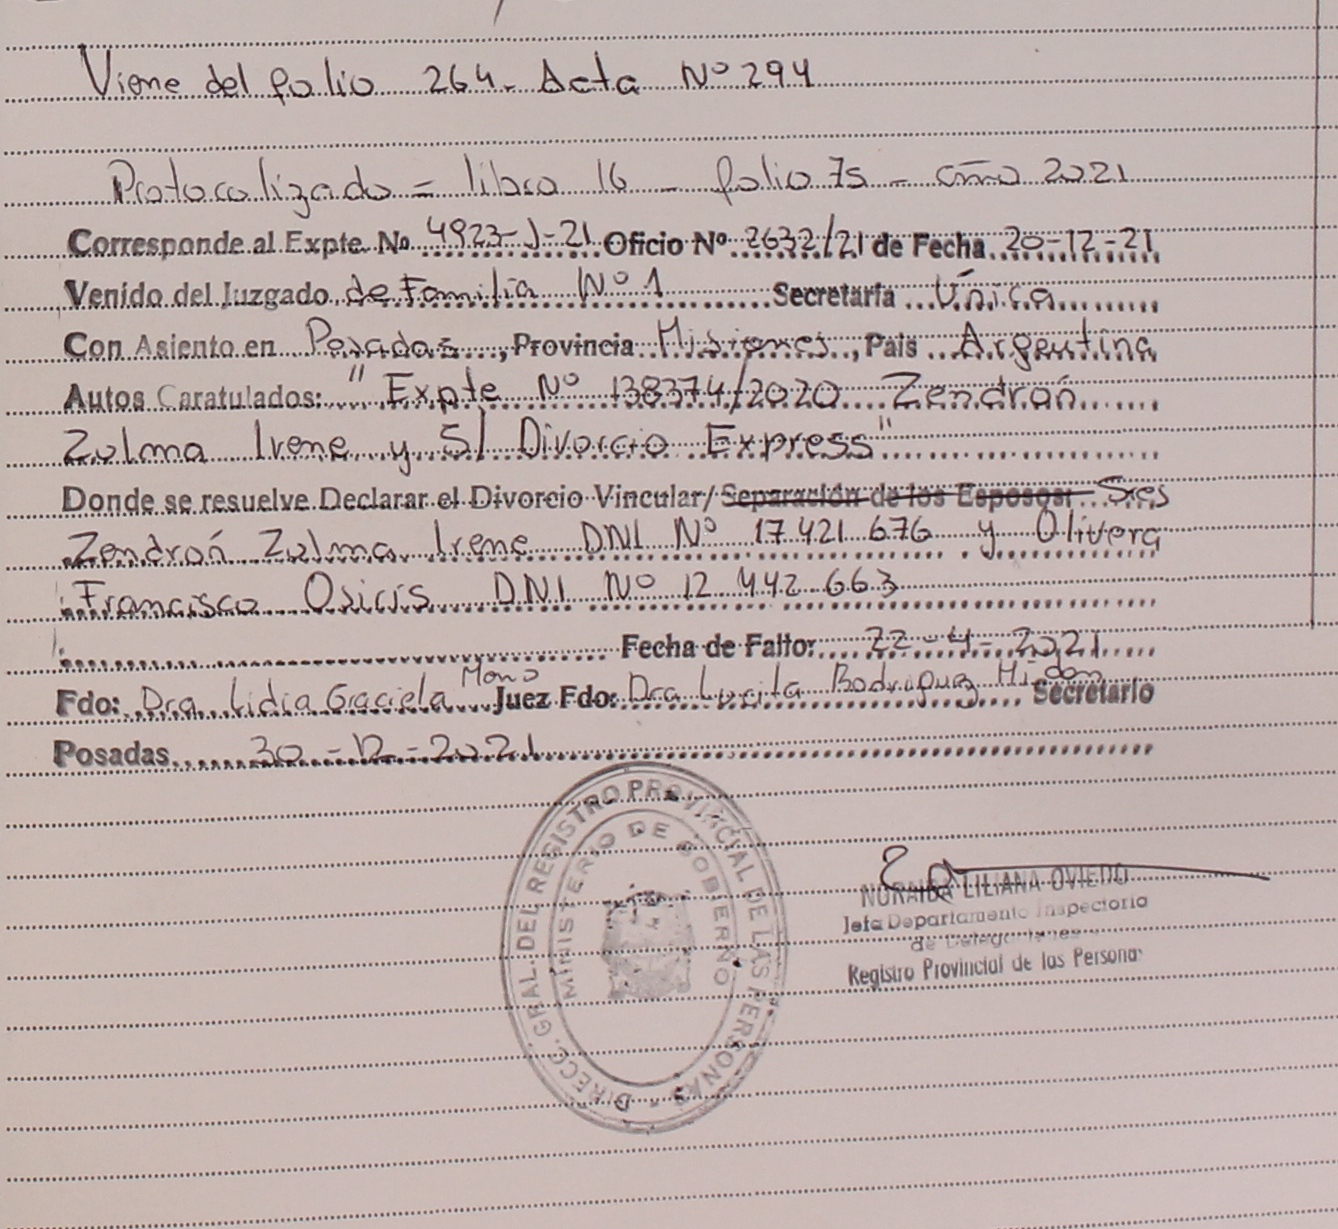 Viene del folio 264. Acta Nº 294
Protocolizado = libro 16 - folio 75 - año 2021
Corresponde al Expte. Nº 4923-J-21 Oficio Nº 2632/21 de Fecha 20-12-21
Venido del Juzgado de Familia Nº 1 Secretaría Única
Con Asiento en Posadas, Provincia Misiones, País Argentina
Autos Caratulados: "Expte Nº 138374/2020 Zendrón
Zulma Irene y S/ Divorcio Express"
Donde se resuelve Declarar el Divorcio Vincular/ Separación de los Esposos: Sres
Zendrón Zulma Irene DNI Nº 17 421 676 y Olivera
Francisco Osiris DNI Nº 12 442 663
Fecha de Fallo: 22-4-2021
Fdo: Dra Lidia Graciela Juez Fdo: Dra Lucila Rodriguez Secretario
Posadas 30-12-2021
DIRECC. GRAL. DEL REGISTRO PROVINCIAL DE LAS PERSONAS
MINISTERIO DE GOBIERNO
NORAIDA LILIANA OVIEDO
Jefa Departamento Inspectorio
de Delegaciones
Registro Provincial de las Personas